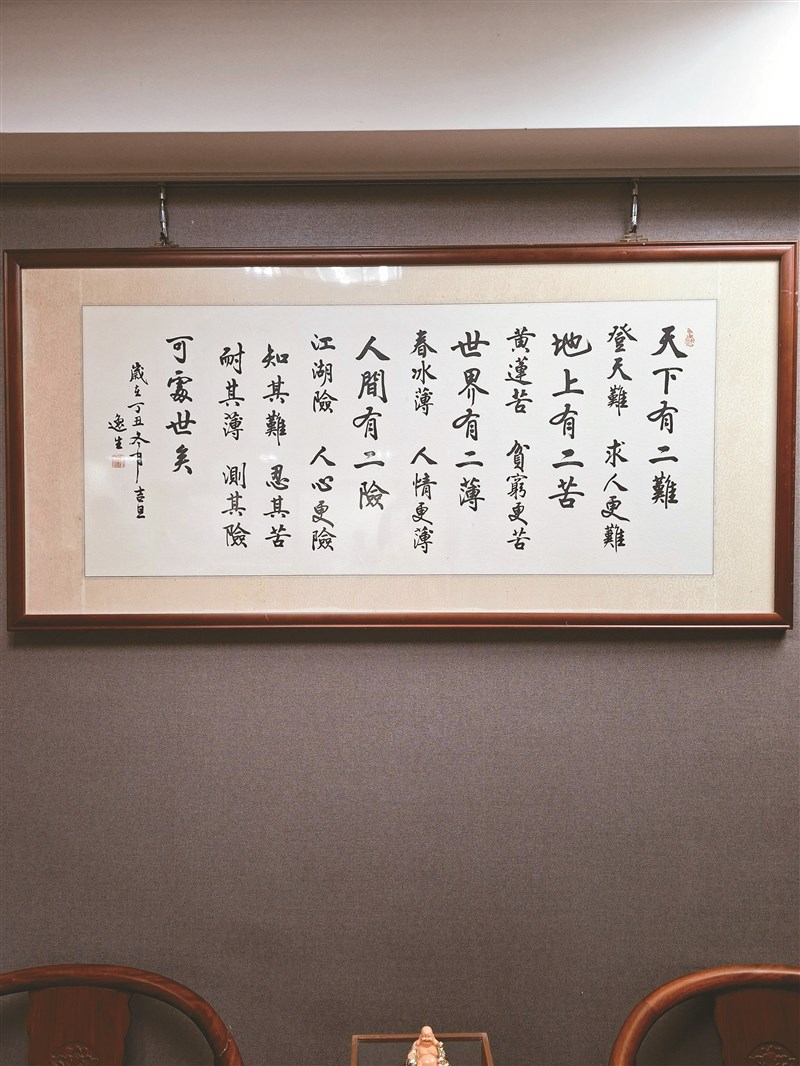 天下有二難
登天難 求人更難
地上有二苦
黃蓮苦 貧窮更苦
世界有二薄
春冰薄 人情更薄
人間有二險
江湖險 人心更險
知其難 忍其苦
耐其薄 測其險
可處世矣
歲在丁丑冬月吉旦
逸生